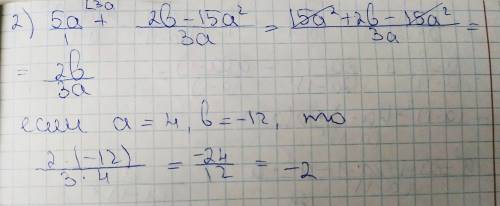 2) 5a/1 [3a + 2b - 15a²/3a = 15a² + 2b - 15a²/3a =
= 2b/3a
если a = 4, b = -12, то
2·(-12)/3·4 = -24/12 = -2